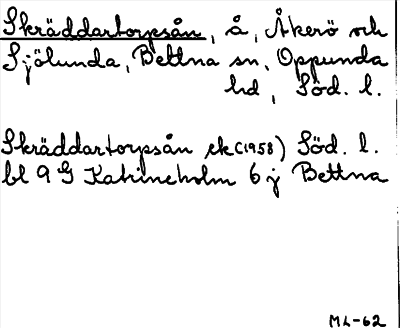 Skräddartorpsån, å, Åkerö och
Sjölunda, Bettna sn, Oppunda
hd, Söd. l.
Skräddartorpsån ek (1958) Söd. l.
bl 9 G Katrineholm 6 j Bettna
ML-62